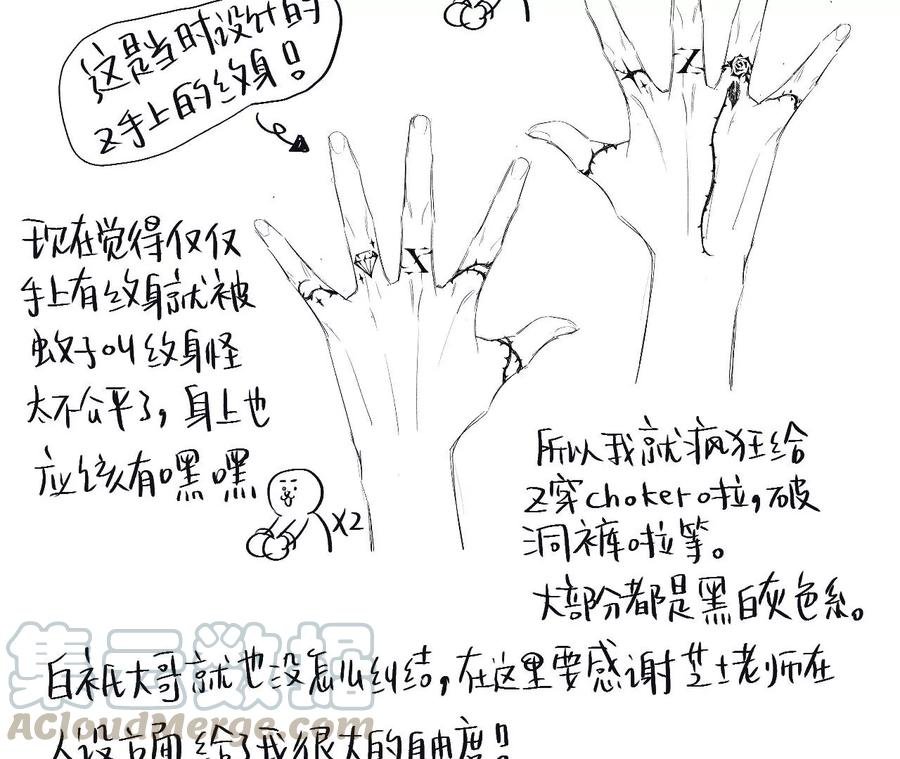 这是当时设计的
Z手上的纹身!
Z
X
现在觉得仅仅
手上有纹身就被
蚊子叫纹身怪
太不公平了，身上也
应该有嘿嘿
X2
所以我就疯狂给
Z穿choker啦，破
洞裤啦等。
大部分都是黑白灰色系。
白祇大哥就也没怎么纠结，在这里要感谢芝士老师在
人设方面给了我很大的自由度!
集云数据
ACloudMerge.com